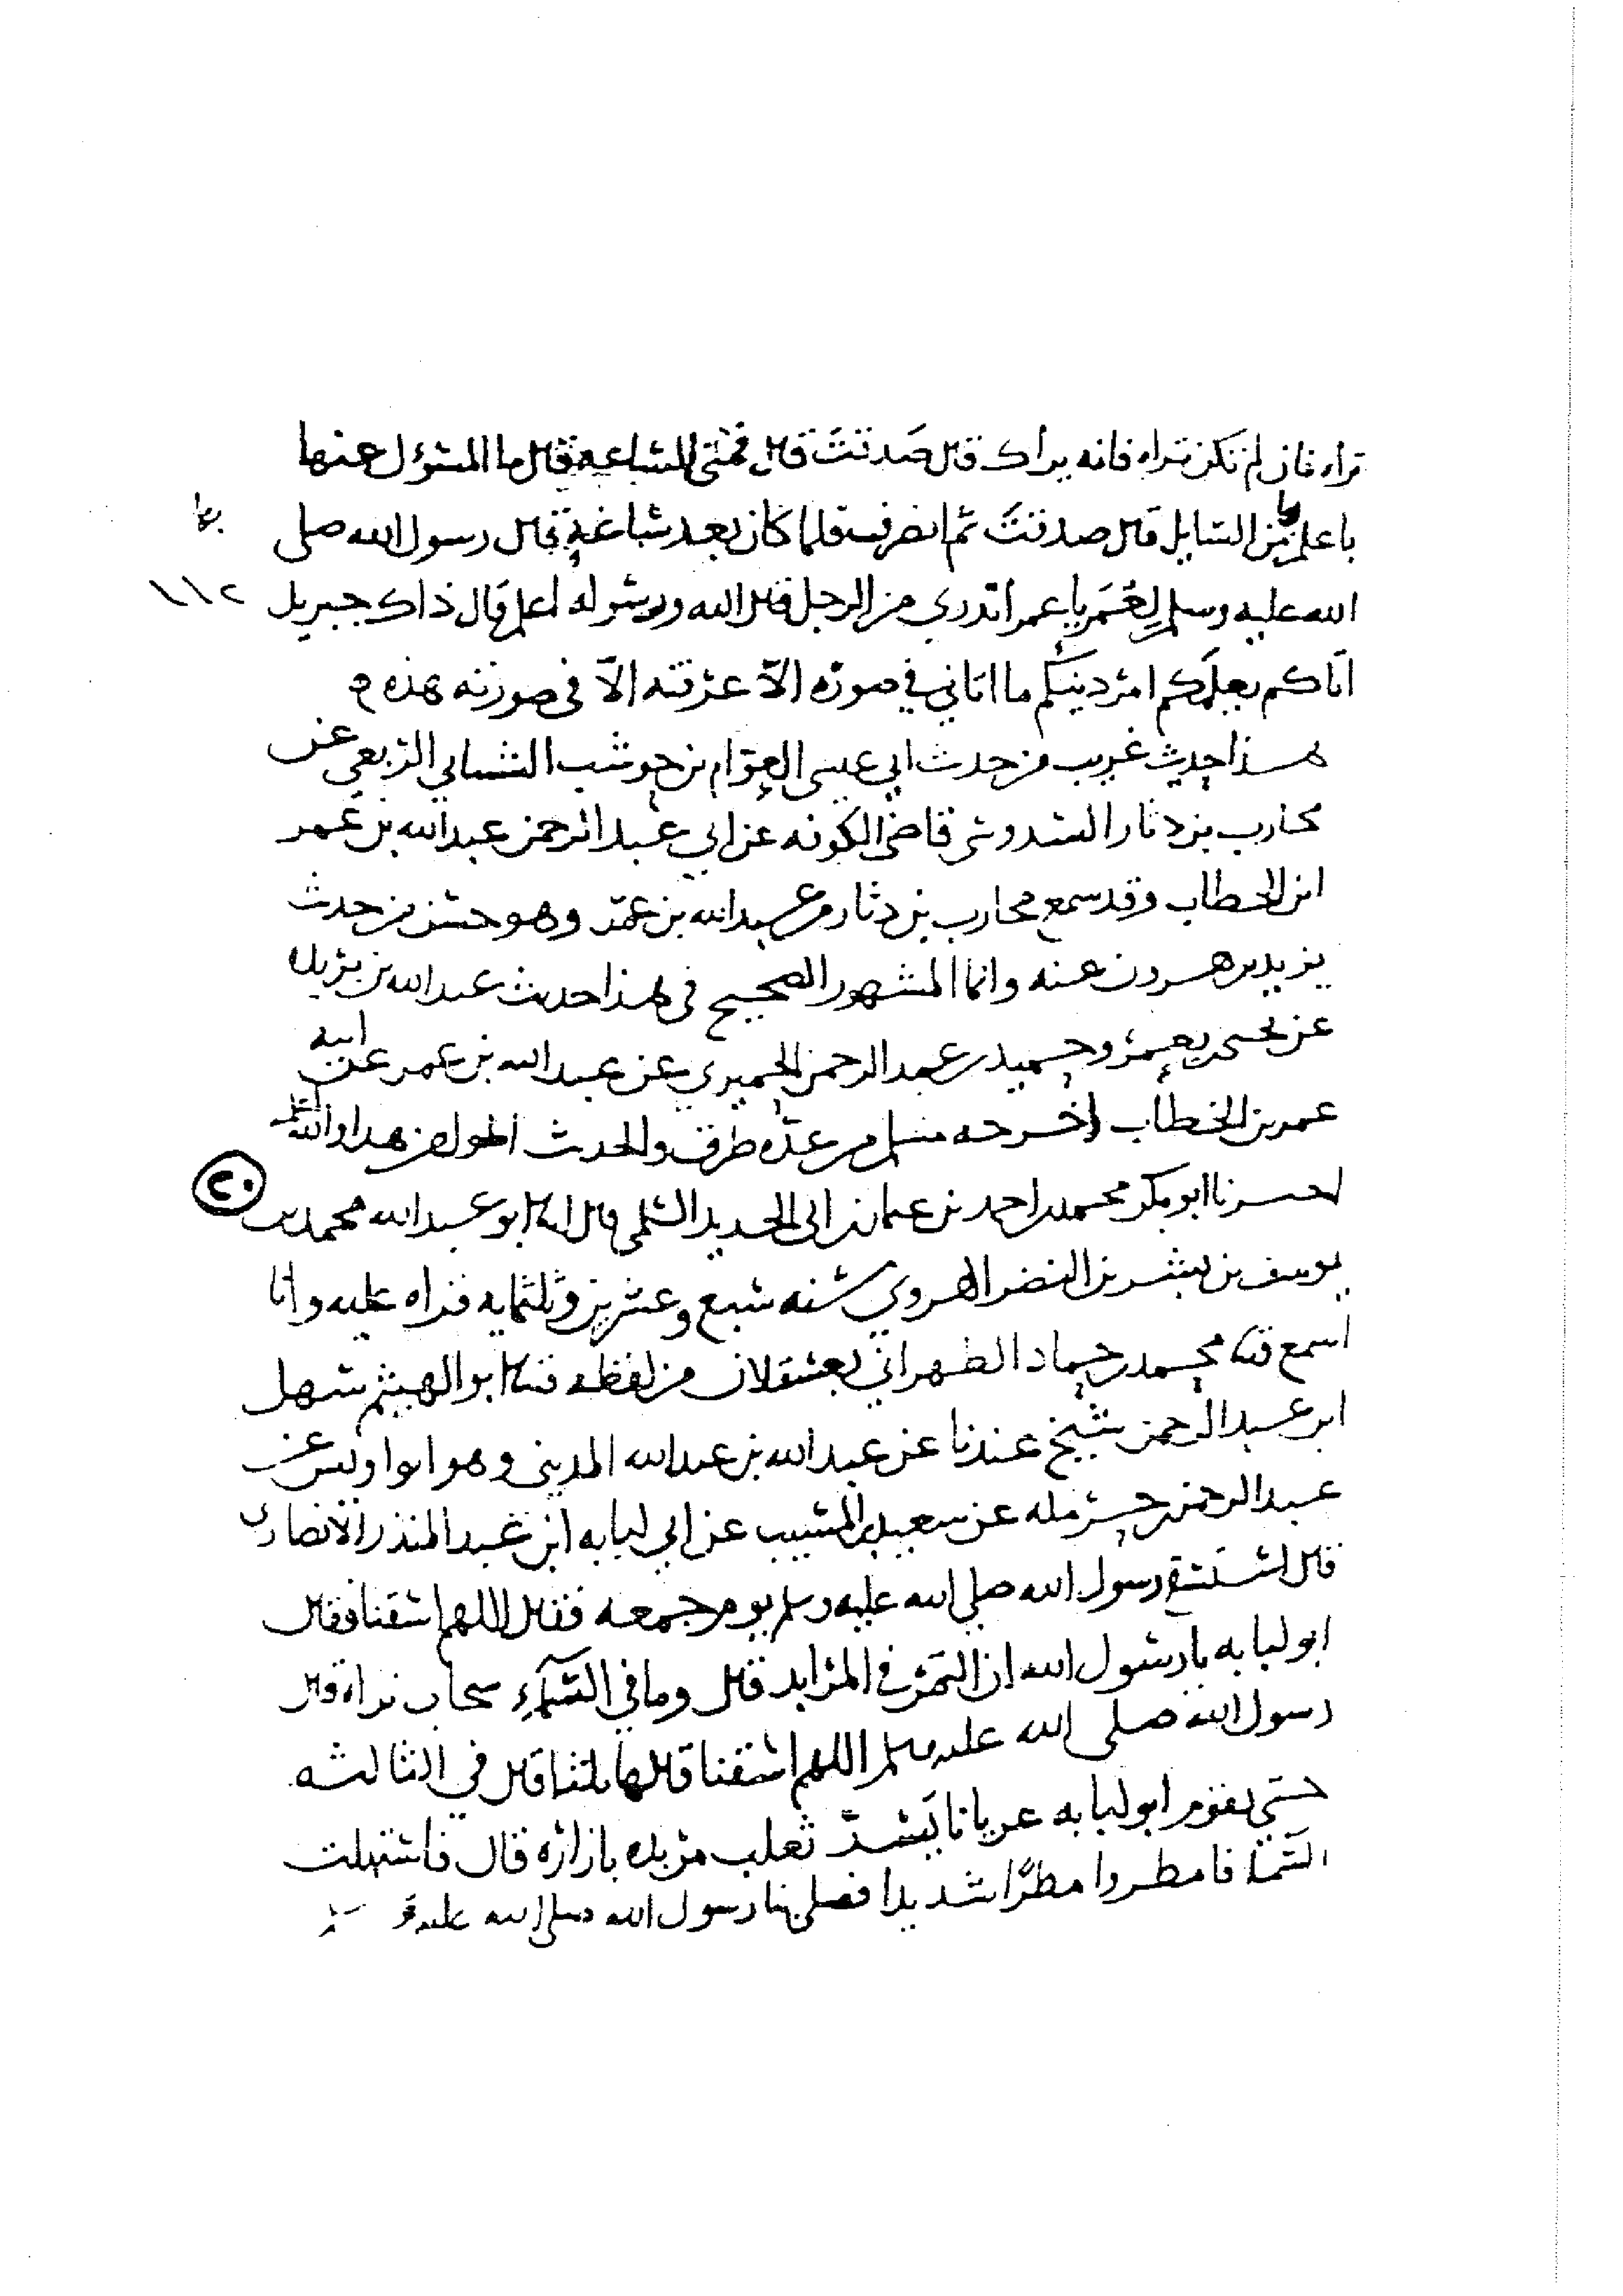 تراه فان لم تكن تراه فانه يراك قال صدقت قال فمتى الساعة قال ما المسؤل عنها
باعلم بها من السايل قال صدقت ثم انصرف فلما كان بعد ساعة قال رسول الله صلى
الله عليه وسلم لعمر يا عمر اتدري من الرجل قال الله ورسوله اعلم قال ذاك جبريل
اتاكم يعلمكم امر دينكم ما اتاني في صورة الا عرفته الا في صورته هذه
هذا حديث غريب من حديث ابي عيسى العوام بن حوشب الشيباني الربعي عن
محارب بن دثار السدوسي قاضي الكوفه عن ابي عبد الرحمن عبد الله بن عمر
ابن الخطاب وقد سمع محارب بن دثار من عبد الله بن عمر وهو حسن من حديث
يزيد بن هرون عنه وانما المشهور الصحيح في هذا حديث عبد الله بن بريده
عن يحيى بن يعمر وحميد بن عبد الرحمن الحميري عن عبد الله بن عمر عن ابيه
عمر بن الخطاب اخرجه مسلم من عدة طرق والحديث اطول من هذا والله
اخبرنا ابو بكر محمد بن احمد بن عثمان بن ابي الحديد السلمي قال انا ابو عبد الله محمد بن
٢٠
يوسف بن بشر بن النضر الهروي سنه سبع وعشرين وثلثمايه قراه عليه وانا
اسمع ثنا محمد بن حماد الطهراني بعسقلان من لفظه ثنا ابو الهيثم سهل
ابن عبد الرحمن شيخ عندنا عن عبد الله بن عبد الله المديني وهو ابو اويس عن
عبد الرحمن بن حرمله عن سعيد بن المسيب عن ابي لبابه ابن عبد المنذر الانصاري
قال استسقى رسول الله صلى الله عليه وسلم يوم جمعه فقال اللهم اسقنا فقال
ابو لبابه يا رسول الله ان التمر في المرابد قال وما في السماء سحاب نراه قال
رسول الله صلى الله عليه وسلم اللهم اسقنا قالها ثلثا قال في الثالثه
حتى يقوم ابو لبابه عريانا يسد ثعلب مربده بازاره قال فاستهلت
السما فامطروا مطرا شديدا فصلى بنا رسول الله صلى الله عليه وسلم